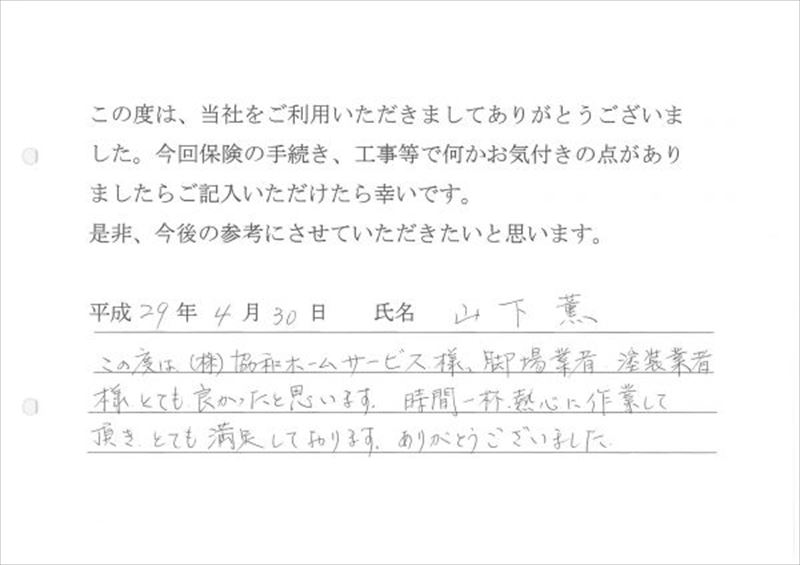 この度は、当社をご利用いただきましてありがとうございま
した。今回保険の手続き、工事等で何かお気付きの点があり
ましたらご記入いただけたら幸いです。
是非、今後の参考にさせていただきたいと思います。
平成29年4月30日 氏名 山下薫
この度は(株)協和ホームサービス様、脚場業者、塗装業者
様、とても良かったと思います。時間一杯、熱心に作業して
頂き、とても満足しております。ありがとうございました。